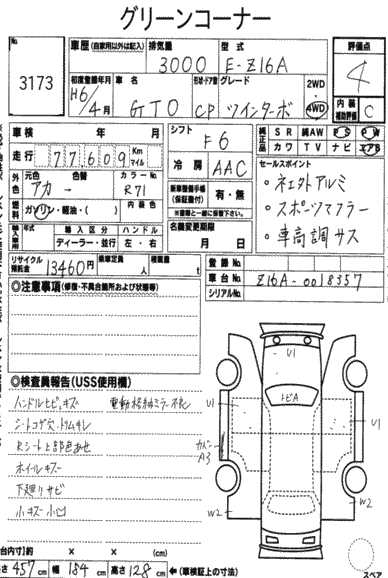 グリーンコーナー
3173
車歴 (自家用以外は記入) 排気量 型式 評価点
3000 E-Z16A 4
初度登録年月 車名 形状・ドア数 グレード 2WD・4WD 内装補助評価
H6/4月 GTO CP ツインターボ C
車検 年 月 シフト F6 純正品 SR 純AW PS PW
カワ TV ナビ エアB
走行 77,609 Km マイル 冷房 AAC セールスポイント
外色 元色 色替 カラーNo
アカ→ R71 新車整備手帳(保証書付) 有・無
・社外アルミ
燃料 ガソリン・軽油・( ) 内装色 ※書類と一緒に保管下さい
・スポーツマフラー
輸入車 年式 輸入区分 ハンドル 名義変更期限
ディーラー・並行 左・右 月 日
・車高調サス
リサイクル預託金 13460円 乗車定員 人 積載量 t 登録No
車台No Z16A-0018357
シリアルNo
◎注意事項 (修復・不具合箇所および状態等)
U1
ルーフA
◎検査員報告 (USS使用欄)
電動格納ミラー不良
U1 U1
カバーA3
Rシート上部色あせ
ホイールキズ
下廻りサビ
小キズ小凹
W2 W2
約 × × (cm)
457 cm 幅 184 cm 高さ 128 cm ←(車検証上の寸法)
スペア